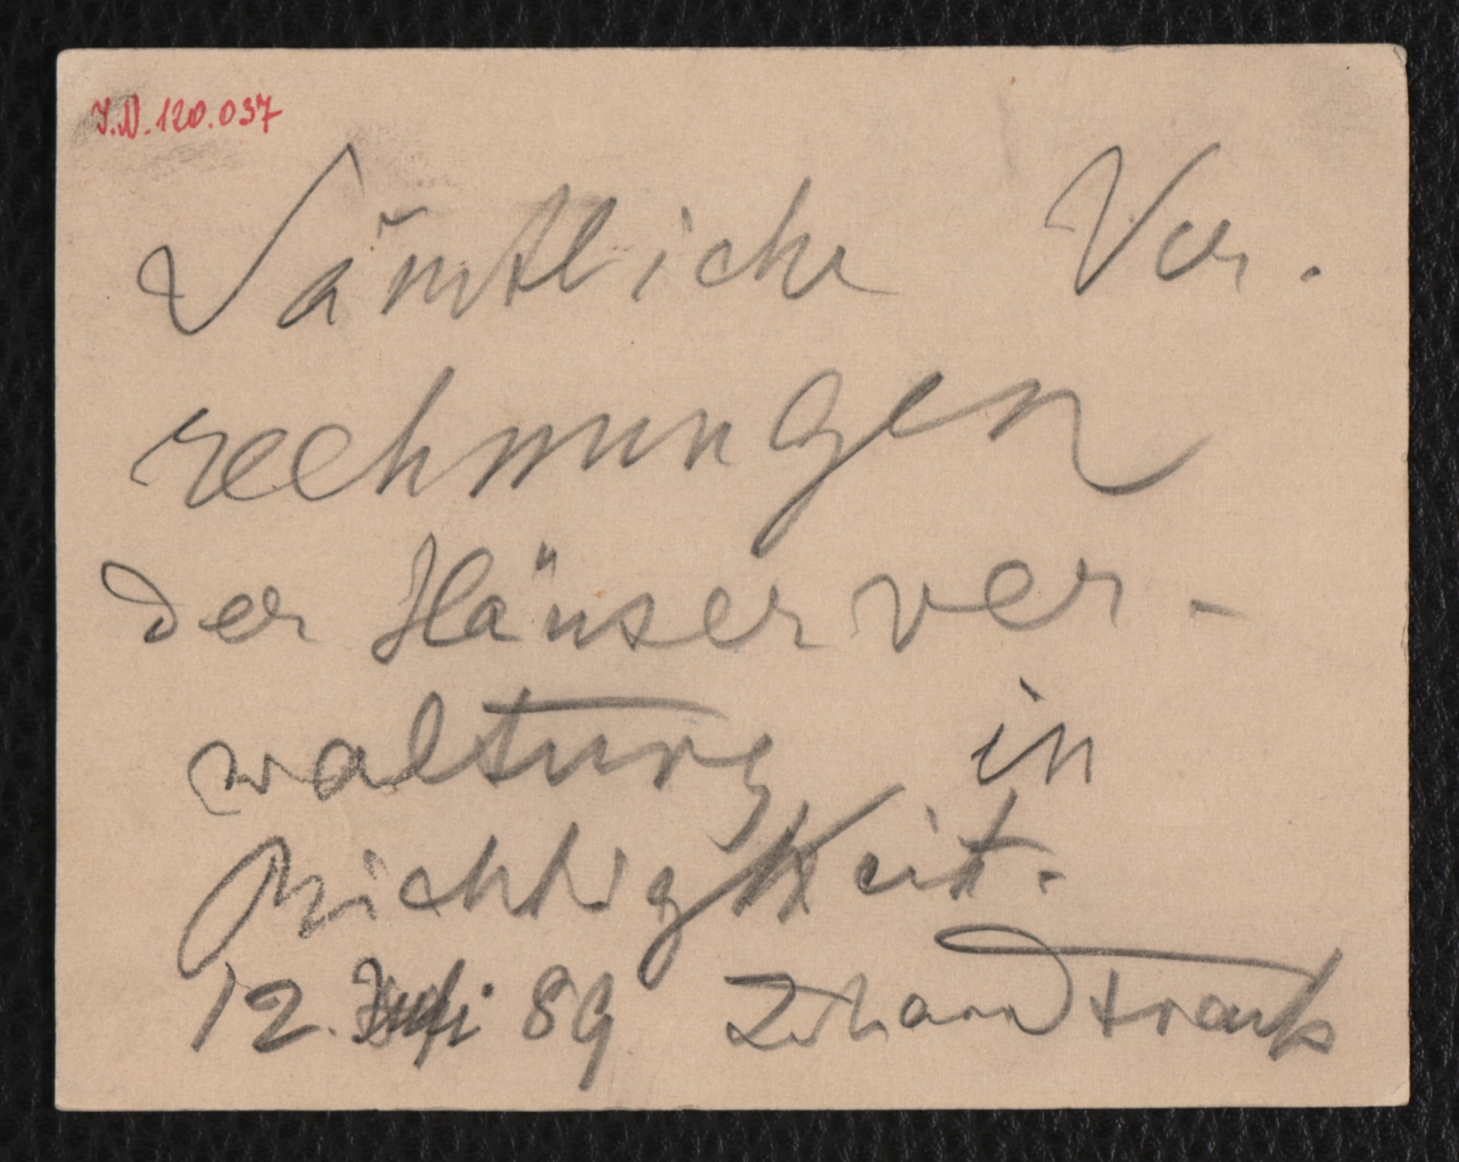 I.N. 120.037
Sämtliche Ver.
rechnungen
der Häuserver-
waltung in
Richtigkeit.
12. Juli 89 Johann Strauß